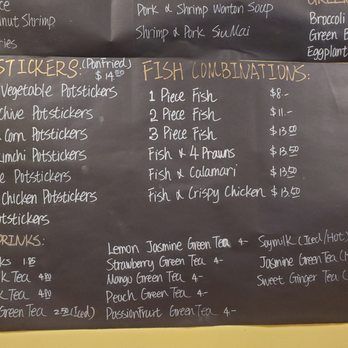 ce
nut Shrimp
ries
Pork & Shrimp Wonton Soup
Shrimp & Pork SiuMai
Broccoli
Green B
Eggplant
STICKERS: (PanFried)
$14.50
Vegetable Potstickers
Chive Potstickers
Corn Potstickers
imchi Potstickers
e Potstickers
Chicken Potstickers
otstickers
FISH COMBINATIONS:
1 Piece Fish $8-
2 Piece Fish $11-
3 Piece Fish $13.50
Fish & 4 Prawns $13.50
Fish & Calamari $13.50
Fish & Crispy Chicken $13.50
RINKS:
ks
k Tea
k Tea
Green Tea 2.50 (Iced)
Lemon Jasmine Green Tea 4-
Strawberry Green Tea 4-
Mango Green Tea 4-
Peach Green Tea 4-
Passionfruit Green Tea 4-
Soymilk (Iced/Hot)
Jasmine Green Tea (
Sweet Ginger Tea (